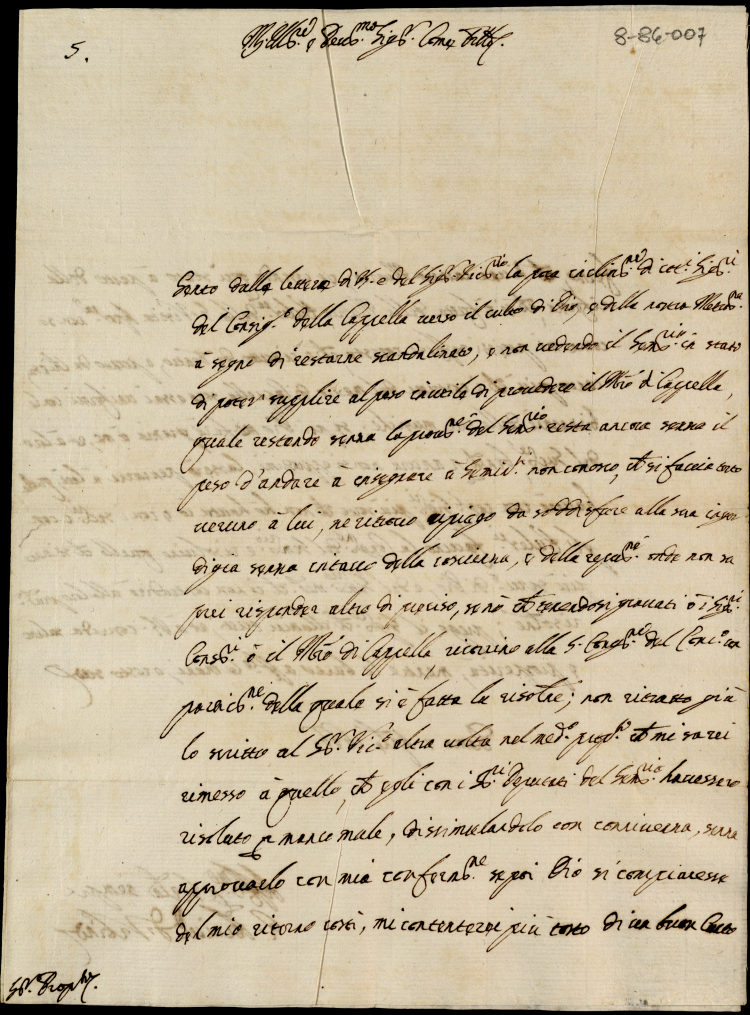 8-86-007
5.
Sento dalla lettera di V.S. e del Sig.r Vic.rio la poca inclin.ne di cot.i Sig.ri
del Consig.o della Cappella verso il culto di Dio, e della nostra
à segno di restarne scandalizato, e non vedendo il Sem.rio in stato
di poter supplire al peso inutile di provedere il M.ro di Cappella,
quale restando senza la provis.ne del Sem.rio resta ancora senza il
peso d'andare à insegnare à Semin.i non conosco, che si faccia torto
veruno à lui, ne ritrovo ripiego da soddisfare alla sua ingor
digia senza intacco della coscienza, e della onde non sa
prei risponder altro di preciso, se nò che tenendosi gravati ò i Sig.ri
Cons.ri ò il M.ro di Cappella ricorrino alla S. Cong.ne del Conc.o con
partic.ne della quale si è fatta la risol.ne; non ritratto già
lo scritto al S.r Vic.o altra volta nel med.o che mi sarei
rimesso à quello, che egli con i SS.ri Deputati del Sem.rio havessero
risoluto p manco male, dissimulandolo con conniverza, senza
approvarlo con mia conferm.ne se poi Dio si compiacesse
del mio ritorno costì, mi contenterei più tosto di un buon Canto